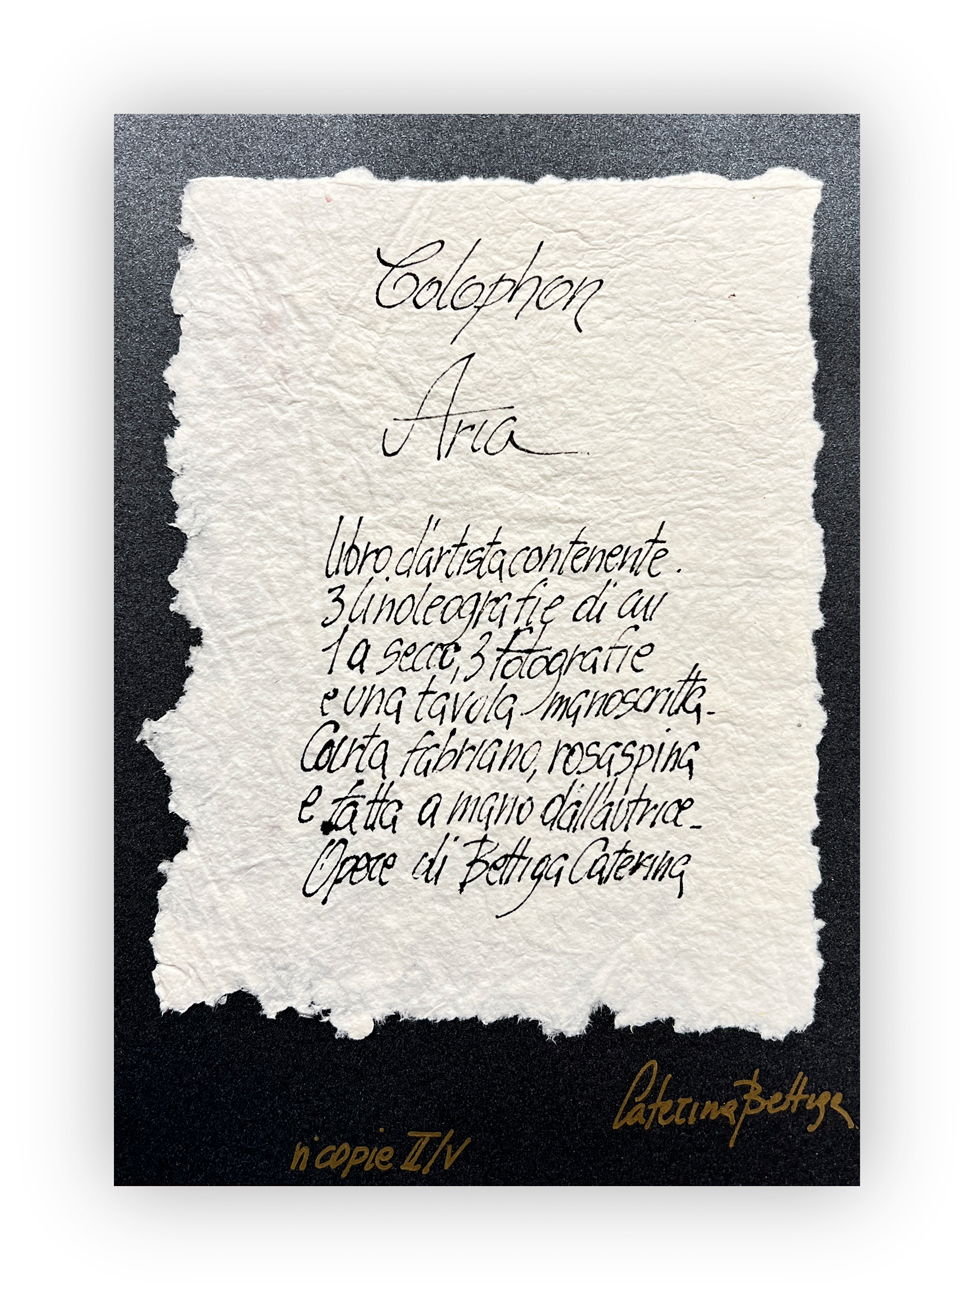 Colophon
Aria
libro d'artista contenente.
3 linoleografie di cui
1 a secco, 3 fotografie
e una tavola manoscritta-
Carta fabriano, rosaspina
e fatta a mano dall'autrice-
Opere di Bettiga Caterina
Caterina Bettiga
n° copie II/V